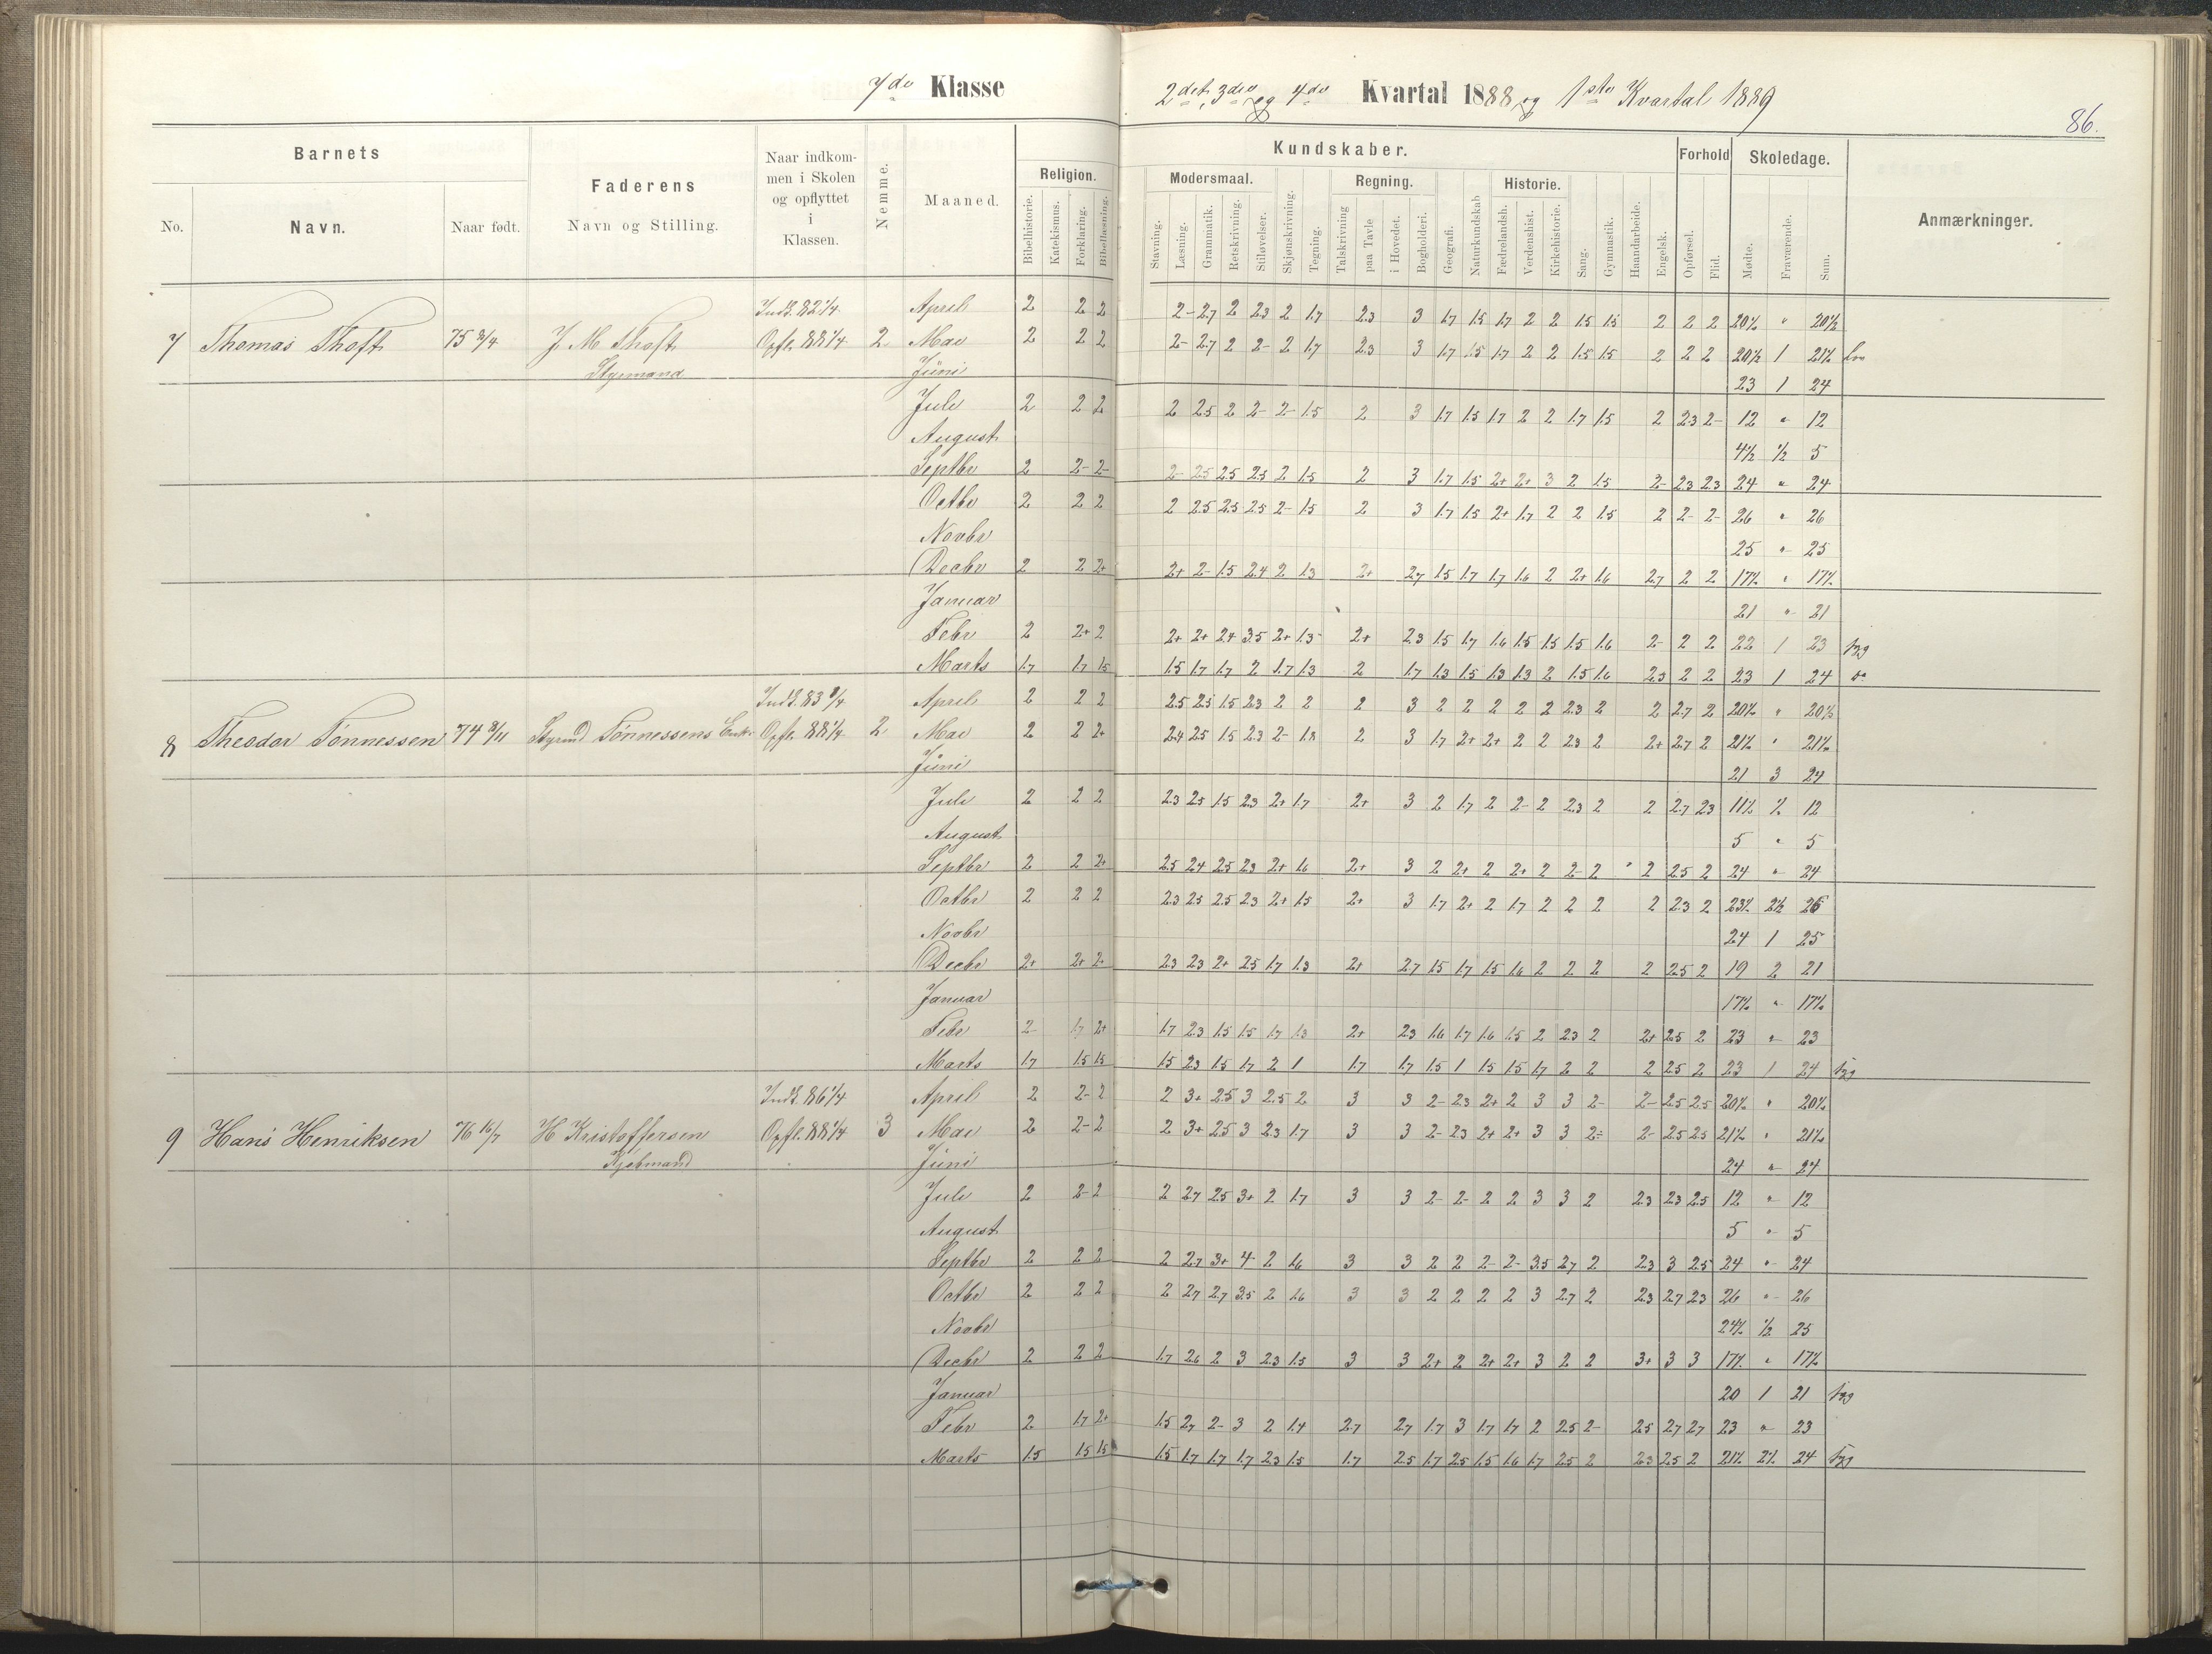 7de Klasse
2det, 3die og 4de Kvartal 1888 og 1ste Kvartal 1889
86.
Barnets
No.
Navn.
Naar født.
Faderens
Navn og Stilling.
Naar indkom-
men i Skolen
og opflyttet
i
Klassen.
Nemme.
Maaned.
Religion.
Bibelhistorie.
Katekismus.
Forklaring.
Bibellæsning.
Kundskaber.
Modersmaal.
Stavning.
Læsning.
Grammatik.
Retskrivning.
Stiløvelser.
Skjønskrivning.
Tegning.
Regning.
Talskrivning
paa Tavle
i Hovedet.
Bogholderi.
Geografi.
Naturkundskab
Historie.
Fædrelandsh.
Verdenshist.
Kirkehistorie.
Sang.
Gymnastik.
Haandarbeide.
Engelsk.
Forhold
Opførsel.
Flid.
Skoledage.
Møde.
Fraværende.
Sum.
Anmærkninger.
Indt. 82 1/4 April 2 2 2 2- 2.7 2 2.3 2 1.7 2.3 3 1.7 1.5 1.7 2 2 1.5 1.5 2 2 2 20½ " 20½
7 Thomas Thoft J. M. Thoft Opfl. 88 1/4 2 Mai 2 2 2 2- 2.7 2 2- 2 1.7 2.3 3 1.7 1.5 1.7 2 2 1.5 1.5 2 2 2 20½ 1 21½
Styrmand Juni 23 1 24
Juli 2 2 2 2 2.5 2 2- 2- 1.5 2 3 1.7 1.5 1.7 2 2 1.7 1.5 2 2.3 2- 12 " 12
August 4½ ½ 5
Septbr 2 2- 2- 2- 2.5 2.5 2.5 2 1.5 2 3 1.7 1.5 2+ 2+ 3 2 1.5 2- 2.3 2.3 24 " 24
Octbr 2 2 2 2 2.5 2.5 2.5 2- 1.5 2 3 1.7 1.5 2+ 1.7 2 2 1.5 2 2- 2- 26 " 26
Novbr 25 " 25
Decbr 2 2 2+ 2+ 2- 1.5 2.4 2 1.3 2+ 2.7 1.5 1.7 1.7 1.6 2 2+ 1.6 2.7 2 2 17½ " 17½
Januar 21 " 21
Febr 2 2+ 2 2+ 2+ 2.4 3.5 2+ 1.3 2+ 2.3 1.5 1.7 1.6 1.5 1.5 1.5 1.6 2- 2 2 22 1 23 syg
Marts 1.7 1.7 1.5 1.5 1.7 1.7 2 1.7 1.3 2 1.7 1.3 1.5 1.3 1.3 2 1.5 1.6 2.3 2 2 23 1 24
April 2 2 2 2.5 2.5 1.5 2.3 2 2 2 3 2 2 2 2 2 2.3 2 2 2.7 2 20½ " 20½
8 Theodor Tønnessen Styrmd Tønnessens Enke Opfl. 88 1/4 2 Mai 2 2 2+ 2.4 2.5 1.5 2.3 2- 1.8 2 3 1.7 2+ 2+ 2 2 2.3 2 2+ 2.7 2 21½ " 21½
Juni 21 3 24
Juli 2 2 2 2.3 2.5 1.5 2.3 2+ 1.7 2+ 3 2 1.7 2 2- 2 2.3 2 2 2.7 2.3 11½ ½ 12
August 5 " 5
Septbr 2 2 2+ 2.5 2.4 2.5 2.3 2+ 1.6 2+ 3 2 2+ 2 2+ 2 2- 2 2 2.5 2 24 " 24
Octbr 2 2 2 2.3 2.5 2.5 2.3 2+ 1.5 2+ 3 1.7 2+ 2 1.7 2 2 2 2 2.3 2 23½ 2½ 26
Novbr 24 1 25
Decbr 2+ 2+ 2+ 2.3 2.3 2+ 2.5 1.7 1.3 2+ 2.7 1.5 1.7 1.5 1.6 2 2 2 2 2.5 2 19 2 21
Januar 17½ " 17½
Febr 2- 1.7 2+ 1.7 2.3 1.5 1.5 1.7 1.3 2+ 2.3 1.6 1.7 1.6 1.5 2 2.3 2 2+ 2.5 2 23 " 23
Marts 1.7 1.5 1.5 1.5 2.3 1.5 1.7 2 1 1.7 1.7 1.5 1 1.5 1.5 1.7 2 2 2 2.5 2 23 1 24 syg
Indt. 86 1/4 April 2 2- 2 2 3+ 2.5 3 2.5 2 3 3 2- 2.3 2+ 2 3 3 2- 2- 2.5 2.5 20½ " 20½
9 Hans Henriksen 76 16/7 H Kristoffersen Opfl. 88 1/4 3 Mai 2 2- 2 2 3+ 2.5 3 2.3 1.7 3 3 2- 2.3 2+ 2+ 3 3 2- 2.5 2.5 21½ " 21½
Kjøbmand Juni 24 " 24
Juli 2 2- 2 2 2.7 2.5 3+ 2 1.7 3 3 2- 2- 2 2 3 3 2 2.3 2.3 2.5 12 " 12
August 5 " 5
Septbr 2 2 2 2 2.7 3+ 4 2 1.6 3 3 2 2 2- 2- 3.5 2.7 2 2.3 3 2.5 24 " 24
Octbr 2 2 2 2 2.7 2.7 3.5 2 1.6 3 3 2 2 2 2 3 2.7 2 2.3 2.7 2.3 26 " 26
Novbr 24½ ½ 25
Decbr 2 2 2 1.7 2.6 2 3 2.3 1.5 3 3 2+ 2 2+ 2+ 3 2 2 3+ 3 3 17½ " 17½
Januar 20 1 21 syg
Febr 2 1.7 2+ 1.5 2.7 2- 3 2 1.4 2.7 2.7 1.7 3 1.7 1.7 2 2.5 2- 2.5 2.7 2.7 23 " 23
Marts 1.5 1.5 1.5 1.5 1.7 1.7 1.7 2.3 1.5 1.7 2.5 1.7 2.5 1.5 1.6 1.7 2.5 2 2.3 2.5 2 21½ 2½ 24 syg